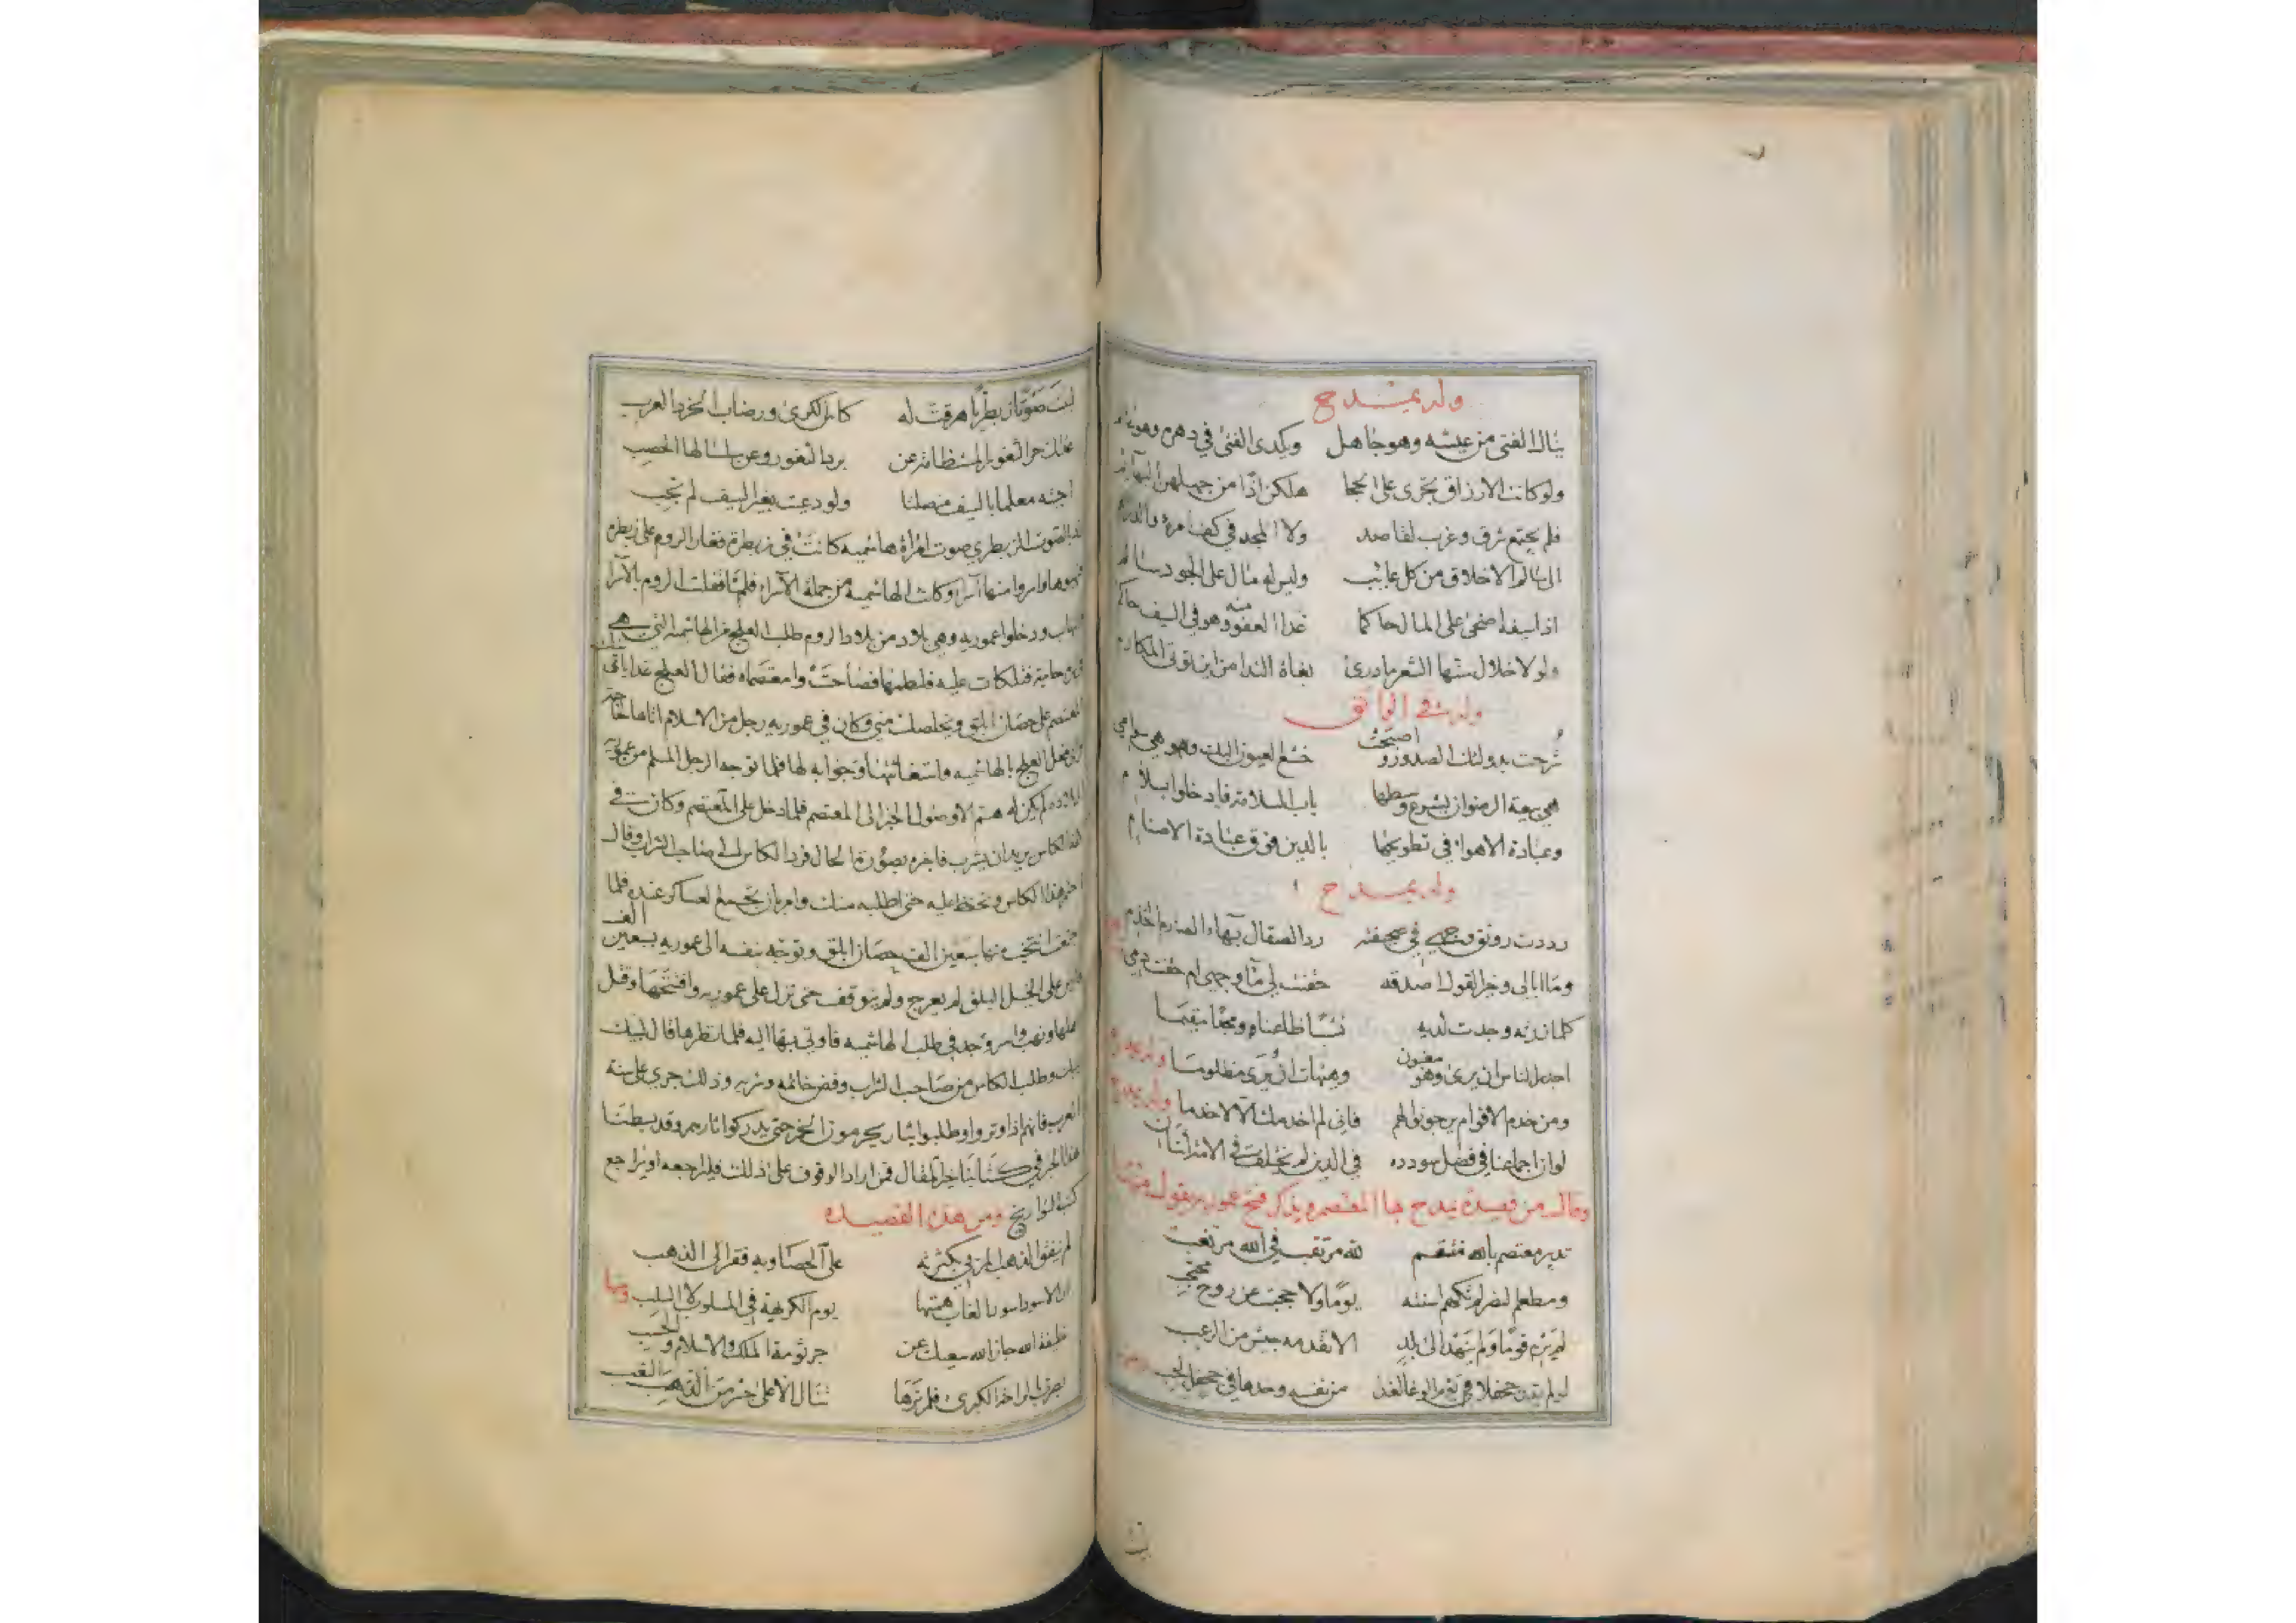 وله يمدح
ينال الفتى من عيشه وهو جاهل ويكدى الفتى في دهره وهو
ولو كانت الارزاق تجرى على الحجا هلكن اذا من جهلهن البهائم
فلم يجتمع شرق وغرب لقاصد ولا المجد في كف امرء والدراهم
الى سالم الاخلاق من كل عائب وليس له مال على الجود سالم
اذا سيفه اضحى على المال حاكما غدا العفو منه وهو في السيف حاكم
ولولا خلال سنها الشعر ما درى بغاة الندا من اين تؤتى المكارم
وله في الواثق
شرحت بدولتك الصدور واصبحت خشع العيون اليك وهو هي سوامي
هي بيعة الرضوان يشرع وسطها باب السلامة فادخلوا بسلام
وعبادة الاهواء في تطويحها بالدين فوق عبادة الاصنام
وله يمدح
رددت رونق وجهي في صحيفته رد الصقال بهاء الصارم الخذم
وما ابالى وخير القول اصدقه حقنت لي ماء وجهي ام حقنت دمي
كلما زرته وجدت لديه نشبا ظاعنا ومجدا مقيما
اجدر الناس ان يرى وهو مغبون وهيهات ان يرى مظلوما وله يمدح
ومن خدم الاقوام يرجو نوالهم فاني لم اخدمك الا لاخدما وله يمدح
لو ان اجماعنا في فضل سودده في الدين لم يختلف في الامة اثنان
وقال من قصيدة يمدح بها المعتصم ويذكر فتح عموريه يقول منها
تدبير معتصم بالله منتقم لله مرتقب في الله مرتغب
ومطعم النصر لم تكهم اسنته يوما ولا حجبت عن روح محتجب
لم يغز قوما ولم ينهد الى بلد الا تقدمه جيش من الرعب
لو لم يقد جحفلا في يوم الوغا لغدا من نفسه وحدها في جحفل لجب
لبيت صوتا زبطريا هرقت له كاس الكرى ورضاب الخرد العرب
عداك حر الثغور المستظامة عن برد الثغور وعن سلسالها الحصب
اجبته معلما بالسيف منصلتا ولو دعيت بغير السيف لم تجب
الصوت الزبطري صوت امراة هاشميه كانت في زبطرة فغار الروم على زبطره
واسروا منها اسرا وكانت الهاشميه من جملة الاسراء فلما قفلت الروم بالاسرا
ودخلوا عموريه وهي بلاد من بلاد الروم طلب العلج من الهاشميه التي هي
عليه فلطمها فصاحت وامعتصماه فقال العلج غدا ياتي
المعتصم على حصان ابلق ويخلصك مني وكان في عموريه رجل من الاسلام
فعل العلج بالهاشميه واستغاثتها وجوابه لها فلما توجه الرجل المسلم من عموريه
لم يكن له هم الا وصول الخبر الى المعتصم فلما دخل على المعتصم وكان في
الكاس يريد ان يشرب فاخبره بصورة الحال فرد الكاس الى صاحب الشراب وقال
هذا الكاس وتحفظ عليه حتى اطلبه منك وامر بان تجمع العساكر عنده فلما
انتخب منها سبعين الف حصان ابلق وتوجه بنفسه الى عموريه بسبعين الف
على الخيل البلق لم يعرج ولم يتوقف حتى نزل على عموريه وافتتحها وقتل
اهلها ونهب واسر وجد في طلب الهاشميه فاوتى بها اليه فلما نظرها قال لبيك
وطلب الكاس من صاحب الشراب وفض خاتمه وشربه وذلك جرى على سنه
العرب فانهم اذا وتروا وطلبوا بثار يحرمون الخمر حتى يدركوا ثارهم وقد بسطنا
هذا الخبر في كتابنا فمن اراد الوقوف على ذلك فليراجعه او يراجع
كتب التواريخ ومن هذه القصيده
لم ينفق الذهب المربي بكثرته على الحصا وبه فقر الى الذهب
ان الاسود اسود الغاب همتها يوم الكريهة في المسلوب لا السلب ومنها
خليفة الله جازا الله سعيك عن جرثومة الملك والاسلام والحسب
بصرت بالراحة الكبرى فلم ترها تنال الا على جسر من التعب